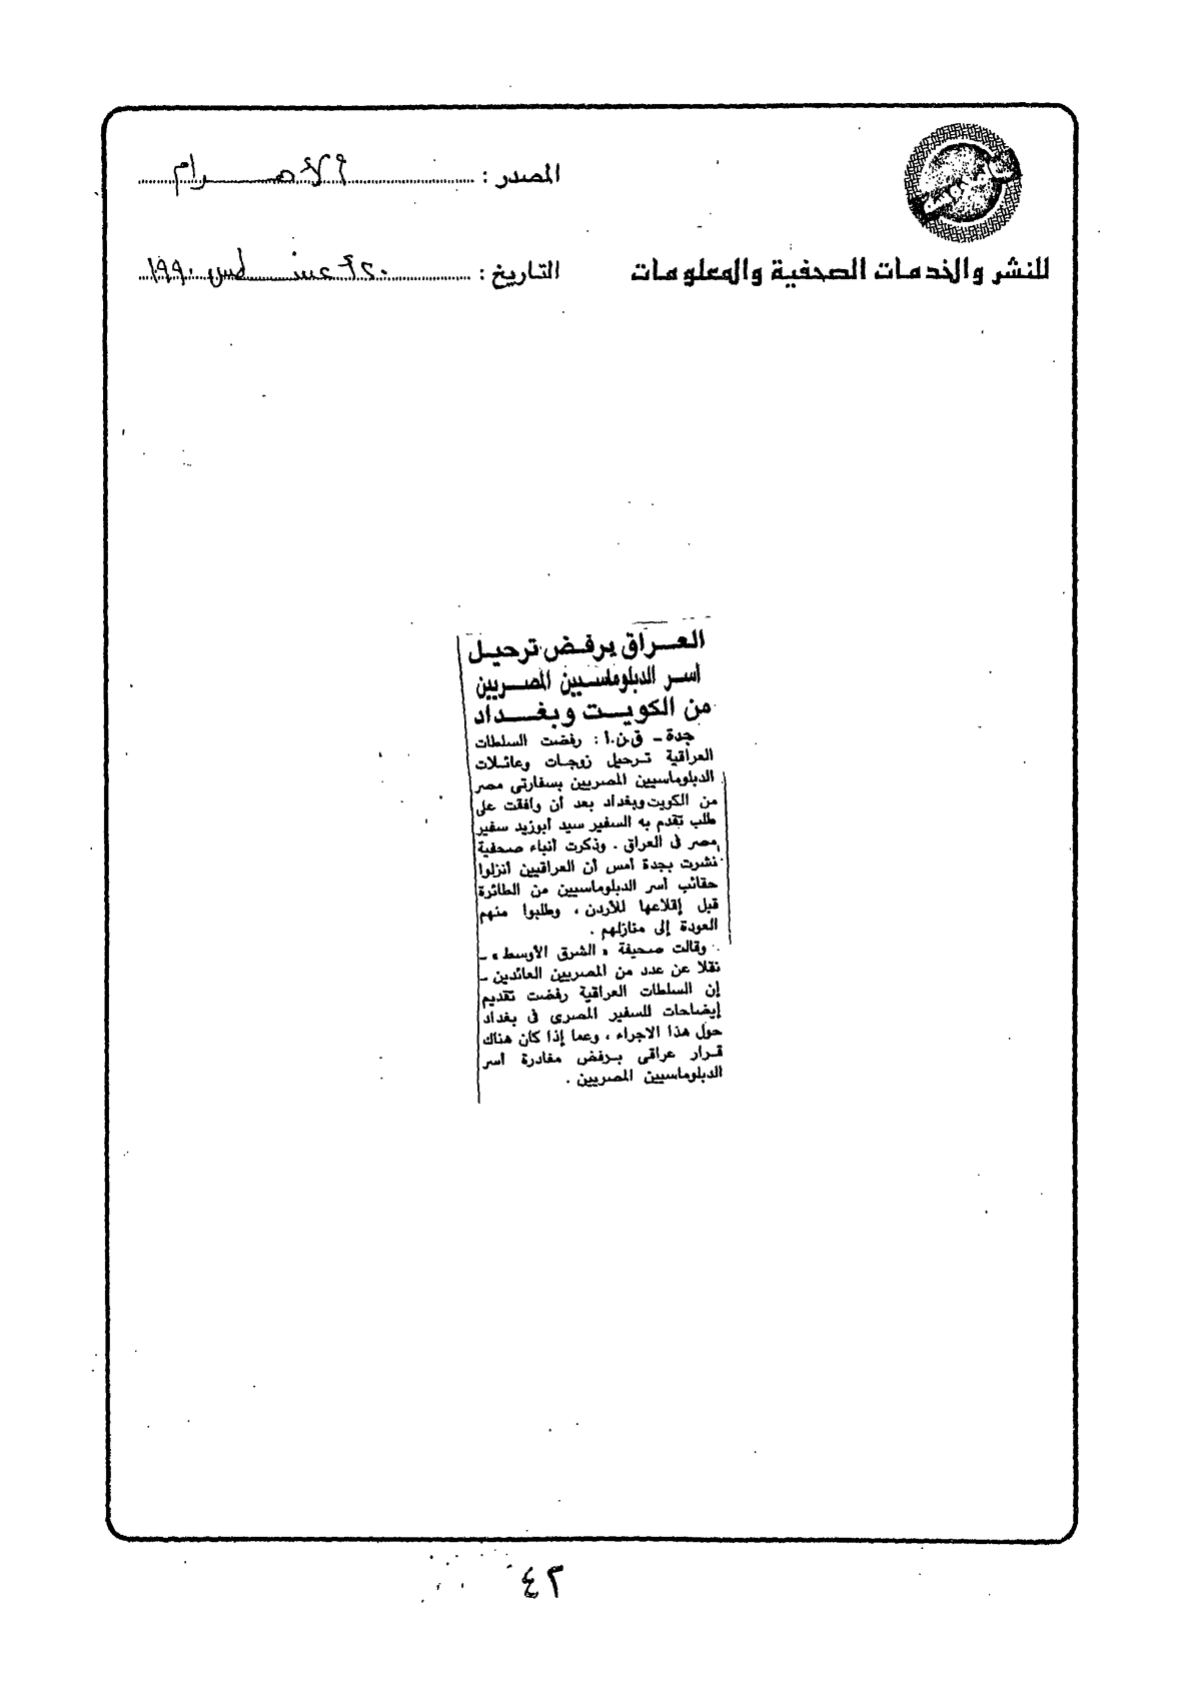 المصدر : الأهـــرام
للنشر والخدمات الصحفية والمعلومات
التاريخ : ٢٠ أغسطس ١٩٩٠
العـراق يرفـض ترحيـل
أسـر الدبلوماسـيين المصـريين
من الكويـت وبغـداد
جدة ـ ق.ن.ا : رفضت السلطات
العراقية ترحيل زوجات وعائلات
الدبلوماسيين المصريين بسفارتى مصر
من الكويت وبغداد بعد أن وافقت على
طلب تقدم به السفير سيد أبوزيد سفير
مصر فى العراق . وذكرت أنباء صحفية
نشرت بجدة أمس أن العراقيين أنزلوا
حقائب أسر الدبلوماسيين من الطائرة
قبل إقلاعها للأردن ، وطلبوا منهم
العودة إلى منازلهم .
وقالت صحيفة « الشرق الأوسط » ـ
نقلا عن عدد من المصريين العائدين ـ
إن السلطات العراقية رفضت تقديم
إيضاحات للسفير المصرى فى بغداد
حول هذا الاجراء ، وعما إذا كان هناك
قرار عراقى برفض مغادرة أسر
الدبلوماسيين المصريين .
٤٢